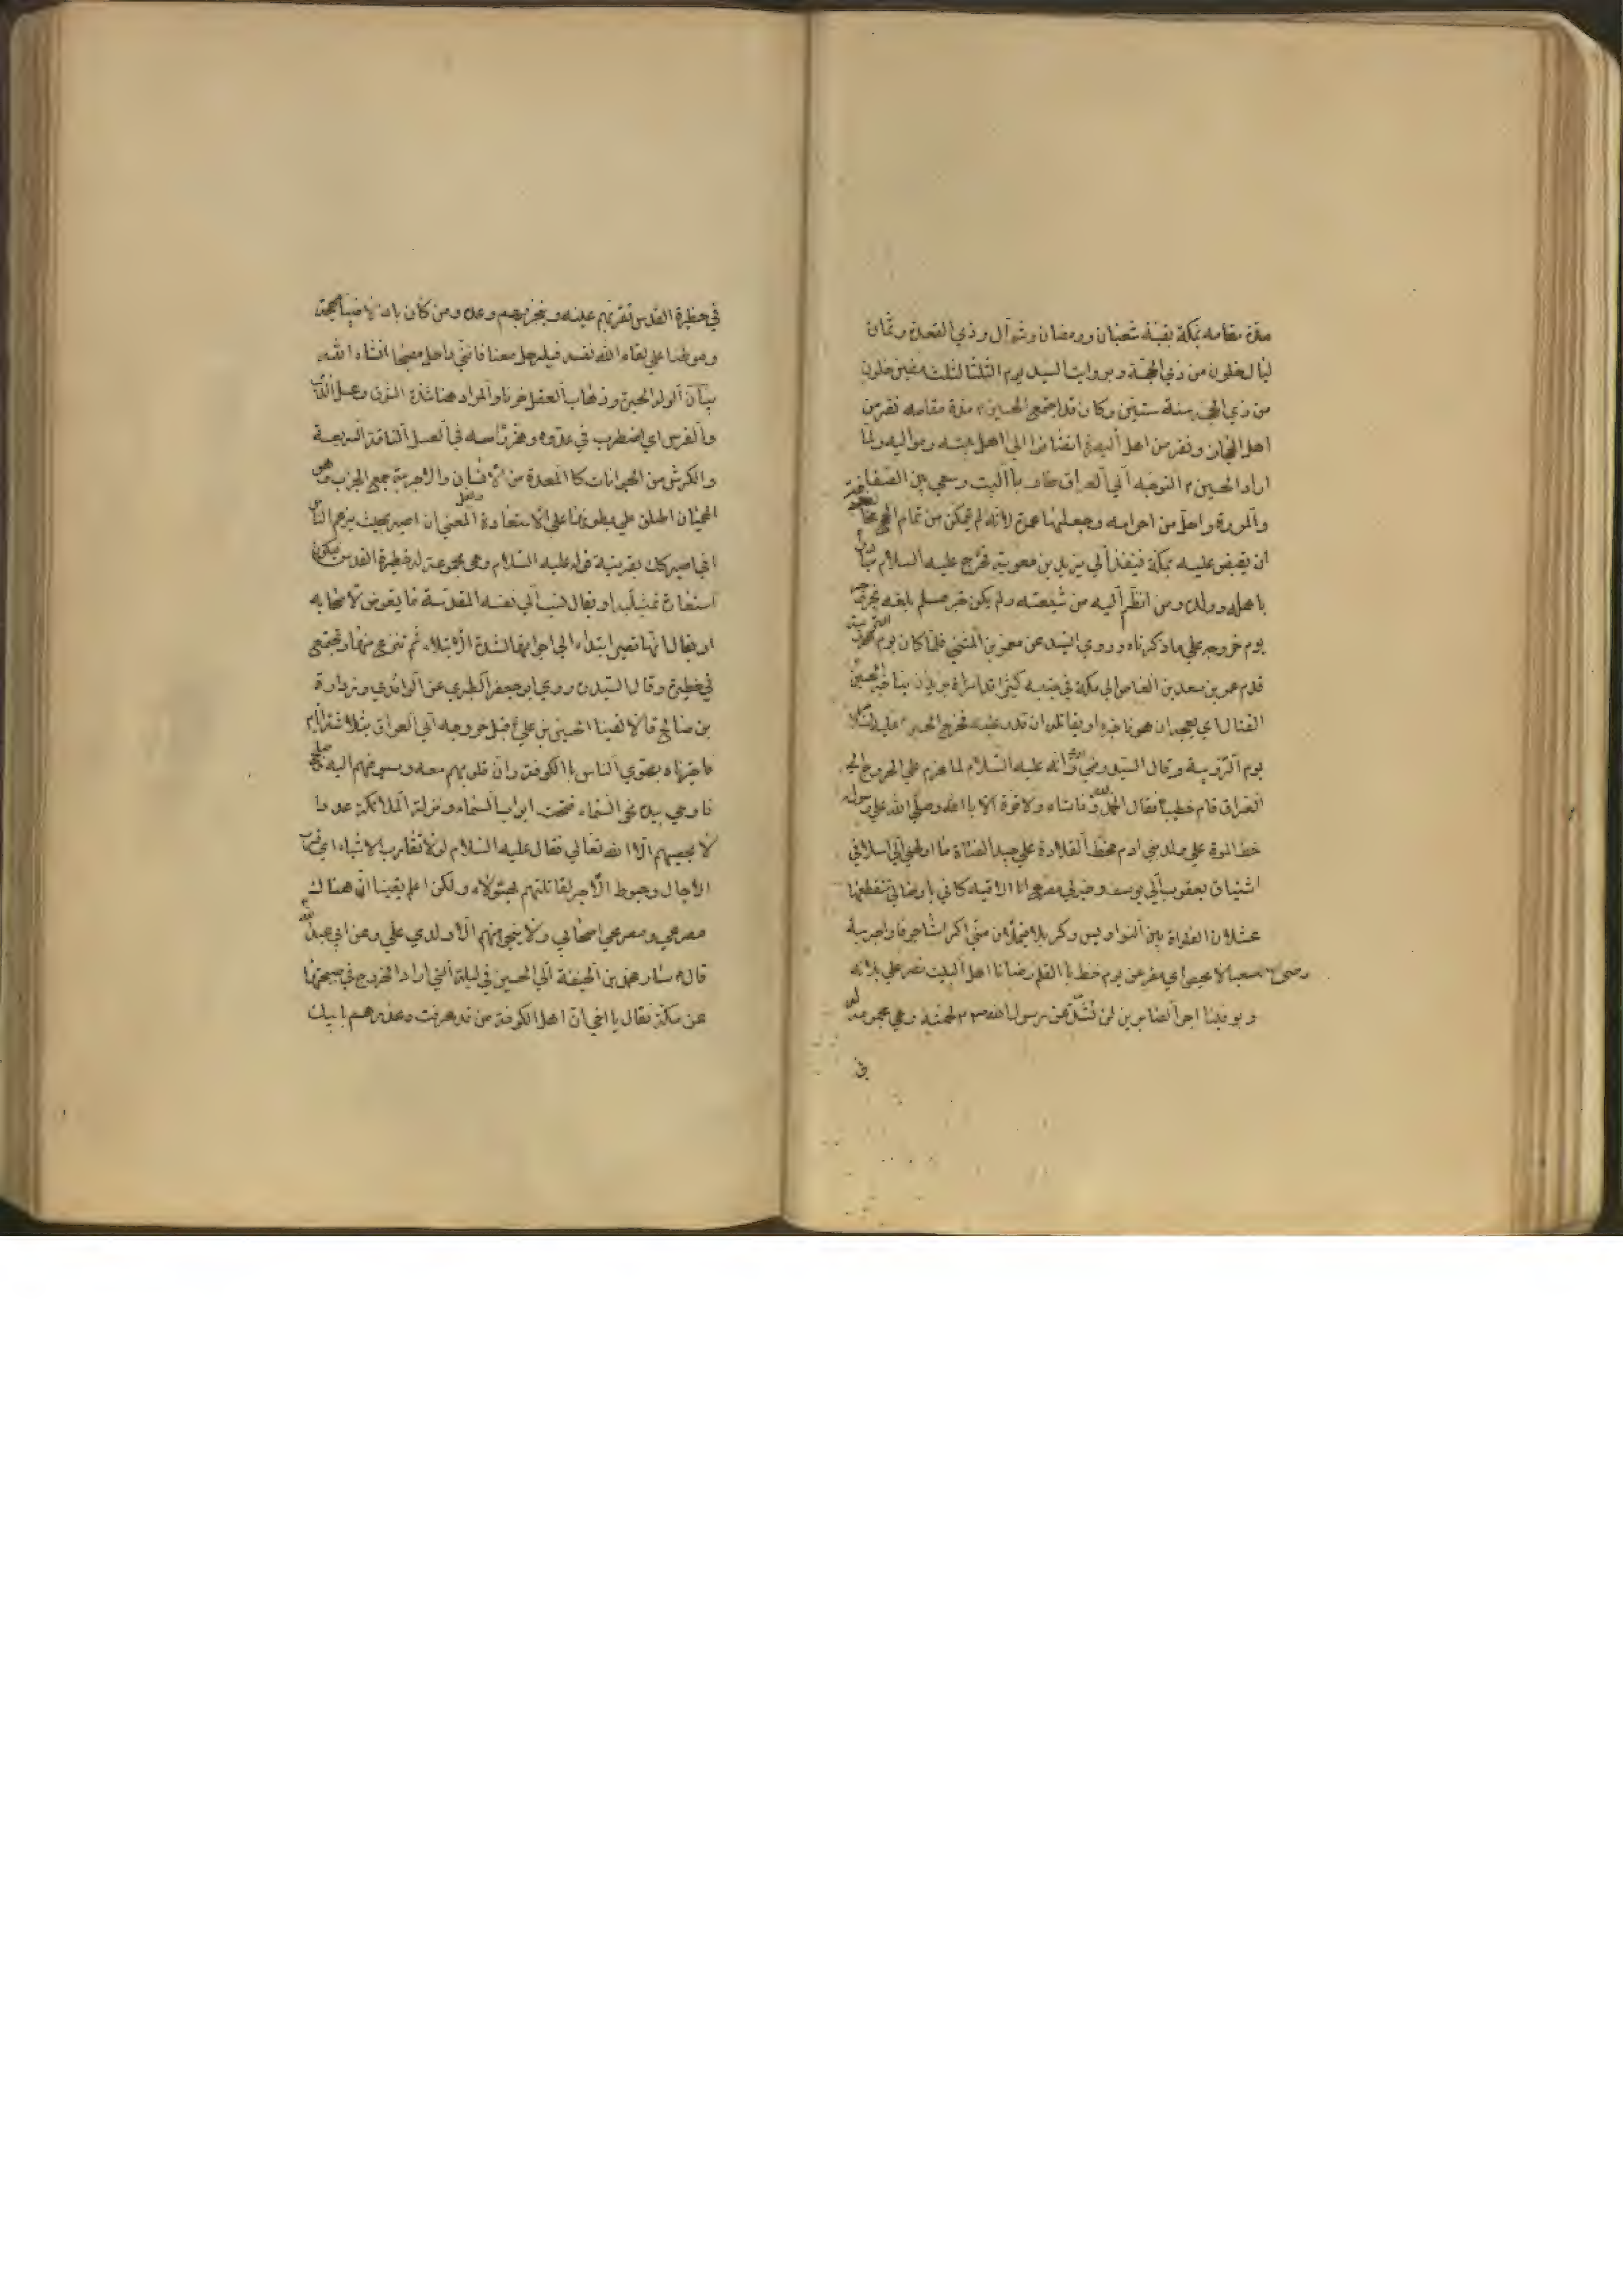 مدة مقامه بمكة بقية شعبان ورمضان وشوال وذي القعدة وثمان
ليال خلون من ذي الحجة وبروايت السيد يوم الثلثا لثلث مضين خلون
من ذي الحجه سنة ستين وكان قد اجتمع الحسين مدة مقامه نفر من
اهل الحجاز ونفر من اهل البصرة انضافوا الي اهل بيته ومواليه ولما
اراد الحسين التوجه الي العراق طاف باالبيت وسعي بين الصفا
والمروة واحل من احرامه وجعلها عمرة لانه لم يتمكن من تمام الحج مخافة
ان يقبض عليه بمكة فينفذ الي يزيد بن معوية فخرج عليه السلام
باهله وولده ومن انظم اليه من شيعته ولم يكن خبر مسلم بلغه
يوم خروجه علي ما ذكرناه وروي السيد عن معمر بن المثني فلما كان يوم التروية
قدم عمر بن سعد بن العاص الي مكة في جند كثير قد امره يزيد ان يناجز الحسين
القتال اي يعجد ان هو ناجزه او يقاتله ان قدر عليه فخرج الحسين عليه السلام
يوم التروية وقال السيد وروي انه عليه السلام لما عزم علي الخروج الي
العراق قام خطيبا فقال الحمد لله وماشاء ولا قوة الا باالله وصلي الله علي رسوله
خط الموة علي ولد بني ادم مخط القلادة علي جيد الفتاة ما اولهني الي اسلافي
اشتياق يعقوب الي يوسف وخير لي مصرع انا الاقيه كاني باوصالي تتقطعها
عسلان الفلواة بين النواويس وكربلا فيملأن مني اكراشا جوفا واجربة
سعبا لا محيص اي مفر عن يوم خط باالقلم رضي الله رضانا اهل البيت نصبر علي بلائه
ويوفينا اجر الصابرين لن تشذ عن رسول الله لحمته وهي مجموعة له
في
في حظيرة القدس تقر بهم عينه وينجز بهم وعده ومن كان باذلا فينا مهجته
وموطنا علي لقاء الله نفسه فليرحل معنا فانني راحل مصبحا انشاء الله
بيان الوله الحيرة وذهاب العقل حزنا والمراد هنا شدة الشوق وعسل الذئب
والفرس اي اضطرب في عدوه وهز رأسه في العسل الناقة السريعة
والكرش من الحيوانات كا المعدة من الانسان والاجربة جمع الجراب وهو
الهميان اطلق علي بطونها علي الاستعارة المعني ان اصير بحيث يزعم الناس
اني اصير كك بقرينة قوله عليه السلام وهي مجموعة له في حظيرة القدس فيكون
استعارة تمثيلية او يقال نسب الي نفسه المقدسة ما يعرض لاصحابه
او يقال انها تصير ابتداء الي اجوافها لشدة الابتلاء ثم تنزع منها وتجتمع
في حظيرة وقال السيد روي ابو جعفر الطبري عن الواقدي وزرارة
بن صالح قالا لقينا الحسين بن علي قبل خروجه الي العراق بثلاثة ايام
فاخبرناه بهوي الناس باالكوفة وان قلوبهم معه وسيوفهم عليه
فاومي بيده نحو السماء ففتحت ابواب السماء ونزلة الملائكة عددا
لا يحصيهم الا الله تعالي فقال عليه السلام لولا تقارب الاشياء
الاجال وحبوط الاجر لقاتلتهم بهؤلاء ولكن اعلم يقينا ان هناك
مصرعي ومصرع اصحابي ولا ينجو منهم الا ولدي علي وعن ابي عبدالله
قال سار محمد بن الحنيفة الي الحسين في ليلة التي اراد الخروج في صبيحتها
عن مكة فقال يا اخي ان اهل الكوفة من قد عرفت وغدرهم بابيك